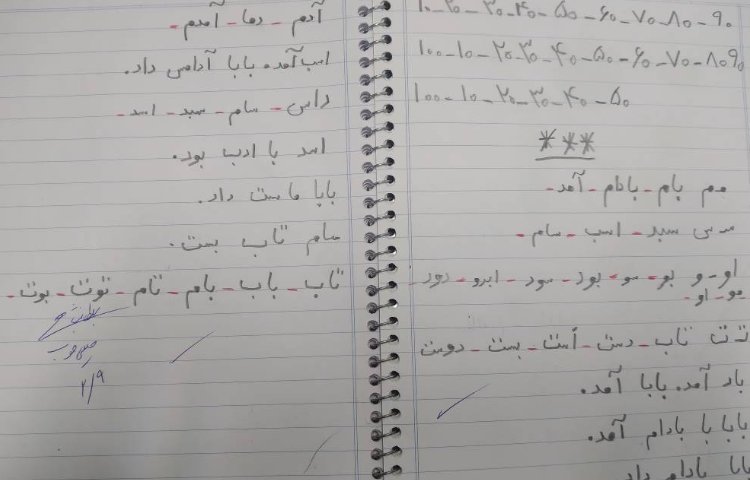 ۱۰-۲۰-۳۰-۴۰-۵۰-۶۰-۷۰-۸۰-۹۰
۱۰۰-۱۰-۲۰-۳۰-۴۰-۵۰-۶۰-۷۰-۸۰۹۰
۱۰۰-۱۰-۲۰-۳۰-۴۰-۵۰
***
م م بام - بادام - آمد-
س س سبد - اسب - سام-
او - و بو - سو - بود - سود - ابرو - دود-
مو - او-
ت ت تاب - دست - است - بست - دوست
باد آمد. بابا آمد.
بابا با بادام آمد.
بابا بادام داد
آدم - دما - آمدم-
اسب آمد. بابا آدامس داد.
داس - سام - سبد - اسد-
اسد با ادب بود.
بابا ماست داد.
سام تاب بست.
تاب - باب - بام - تام - توت - بوت-
۲/۹